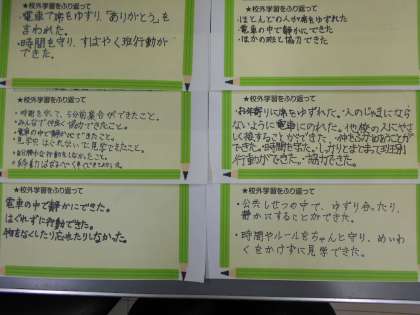 ★校外学習をふり返って
・電車で席をゆずり、「ありがとう」を
言われた。
・時間を守り、すばやく班行動が
できた。
★校外学習をふり返って
・ほとんどの人が席をゆずれた
・電車の中で静かにできた
・ほかの班と協力できた
★校外学習をふり返って
・時間を守って、5分前集合ができたこと。
・みんなで仲良く協力できたこと。
・電車の中で静かにできたこと。
・見学中はぐれないで見学できたこと。
・自分勝手な行動をしなかったこと。
★校外学習をふり返って
・お年寄りに席をゆずれた。・人のじゃまになら
ないように電車にのれた。・他校の人にやさ
しく接することができた。・仲を深めあうことが
できた。・時間を守れ、しっかりとまとまって班別
行動ができた。・協力できた。
★校外学習をふり返って
電車の中で静かにできた。
はぐれずに行動できた。
物をなくしたり忘れたりしなかった。
★校外学習をふり返って
・公共しせつの中で、ゆずり合ったり、
静かにすることができた。
・時間やルールをちゃんと守り、めいわ
くをかけずに見学できた。